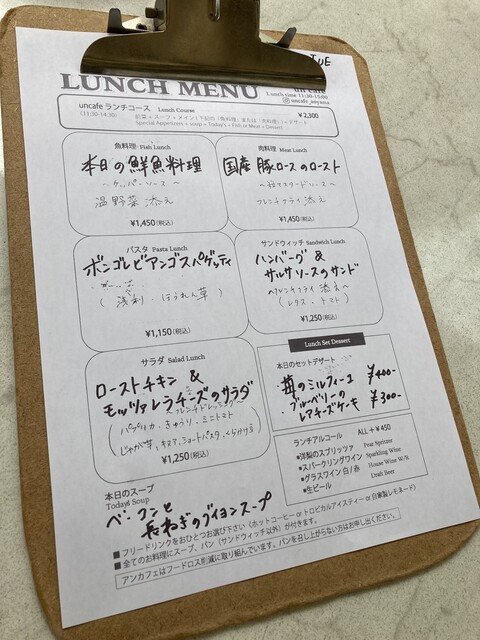 TUE
LUNCH MENU
un café
Lunch time 11:30-15:00
uncafe_aoyama
uncafe ランチコース Lunch Course ¥2,300
(11:30-14:30)
Special Appetizers + soup + Today's + Fish or Meat + Dessert
魚料理/ Fish Lunch
本日の鮮魚料理
～ケッパーソース～
温野菜 添え
¥1,450(税込)
肉料理 Meat Lunch
国産 豚ロースのロースト
～粒マスタードソース～
フレンチフライ 添え
¥1,450(税込)
パスタ Pasta Lunch
ボンゴレビアンゴスパゲッティ
(浅利・ほうれん草)
¥1,150(税込)
サンドウィッチ Sandwich Lunch
ハンバーグ &
サルサソースのサンド
～フレンチフライ 添え～
(レタス・トマト)
¥1,250(税込)
サラダ Salad Lunch
ローストチキン &
モッツァレラチーズのサラダ
～フレンチドレッシング～
(パプリカ・きゅうり・ミニトマト
じゃが芋・キヌア・ショートパスタ・くらげ)
¥1,250(税込)
Lunch Set Dessert
本日のセットデザート
苺のミルフィーユ ¥400-
ブルーベリーの
レアチーズケーキ ¥300-
ランチアルコール ALL +¥450
■洋梨のスプリッツァ Pear Spritzer
■スパークリングワイン Sparkling Wine
■グラスワイン 白/赤 House Wine W/R
■生ビール Draft Beer
本日のスープ
Today's Soup
ベーコンと
長ねぎのブイヨンスープ
■フリードリンクをおひとつお選び下さい(ホットコーヒー or トロピカルアイスティー or 自家製レモネード)
■全てのお料理にスープ、パン(サンドウィッチ以外)が付きます。パンを召し上がらない方はお申し出ください。
アンカフェはフードロス削減に取り組んでいます。